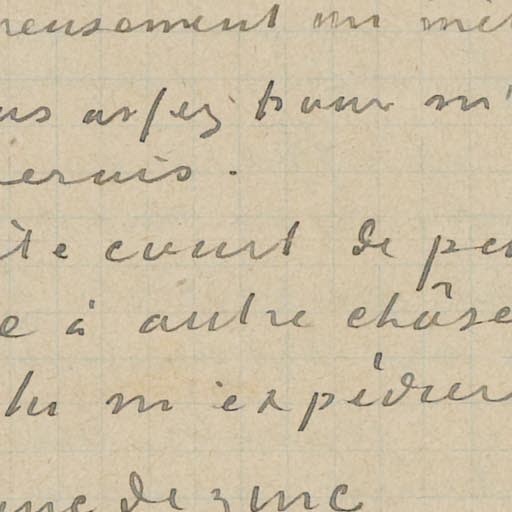 reusement un mét
us assez pour m'
ervis.
ite court de pe
e à autre chôse
lu m'expédier
de zinc